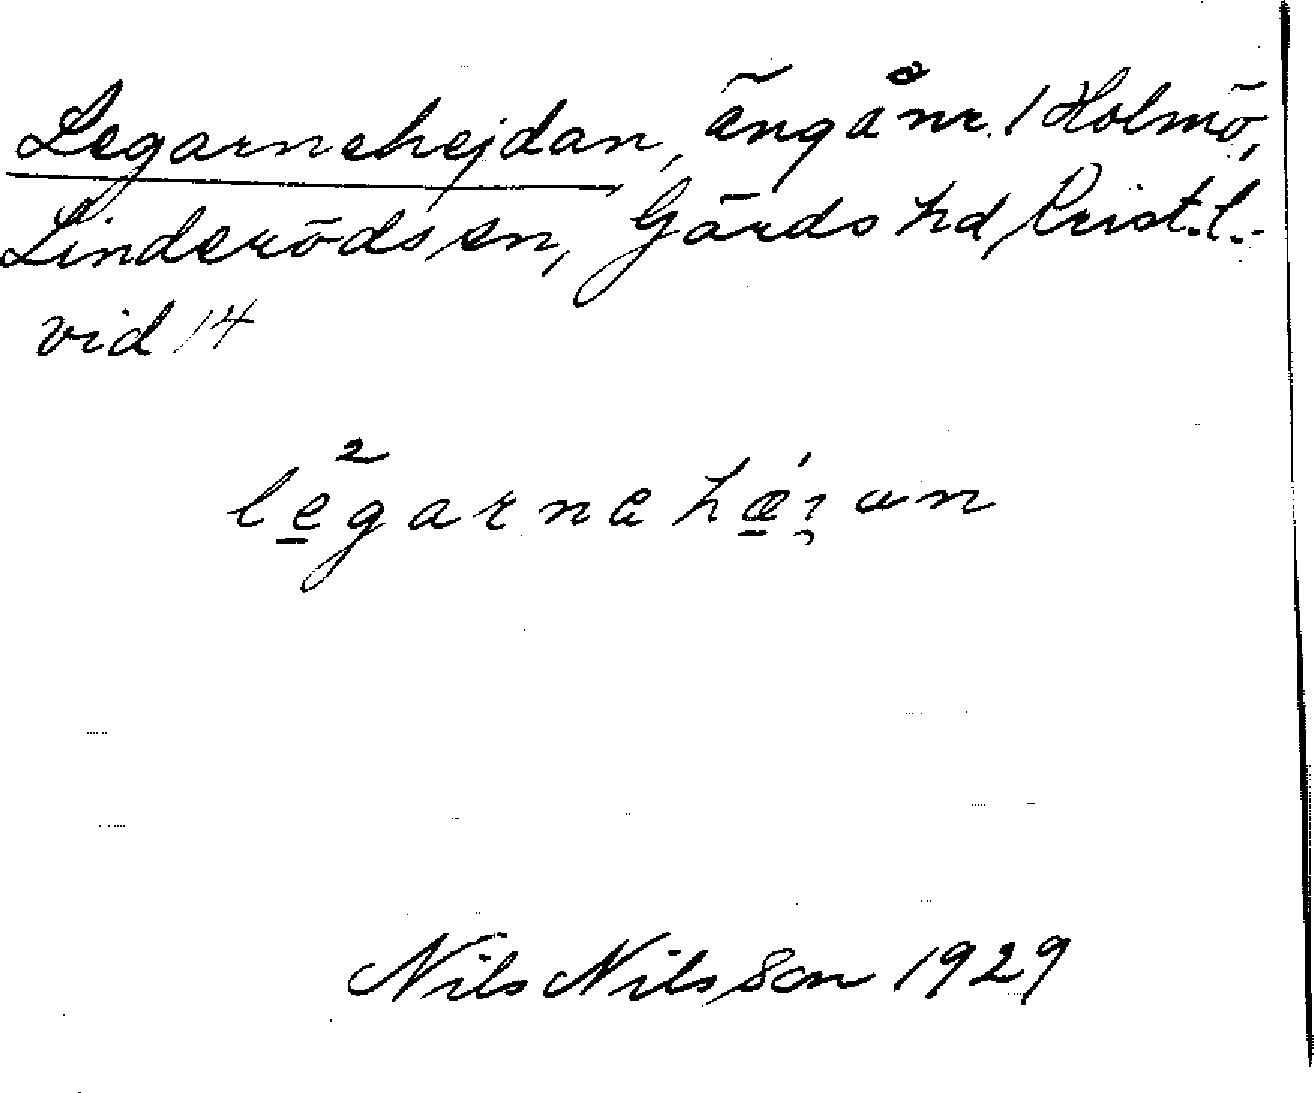 Legarnehejdan, äng å nr. 1 Holmö,
Linderöds sn, Gärds hd, Krist.l.
vid 14
le²garnahæ'ɿan
Nils Nilsson 1929